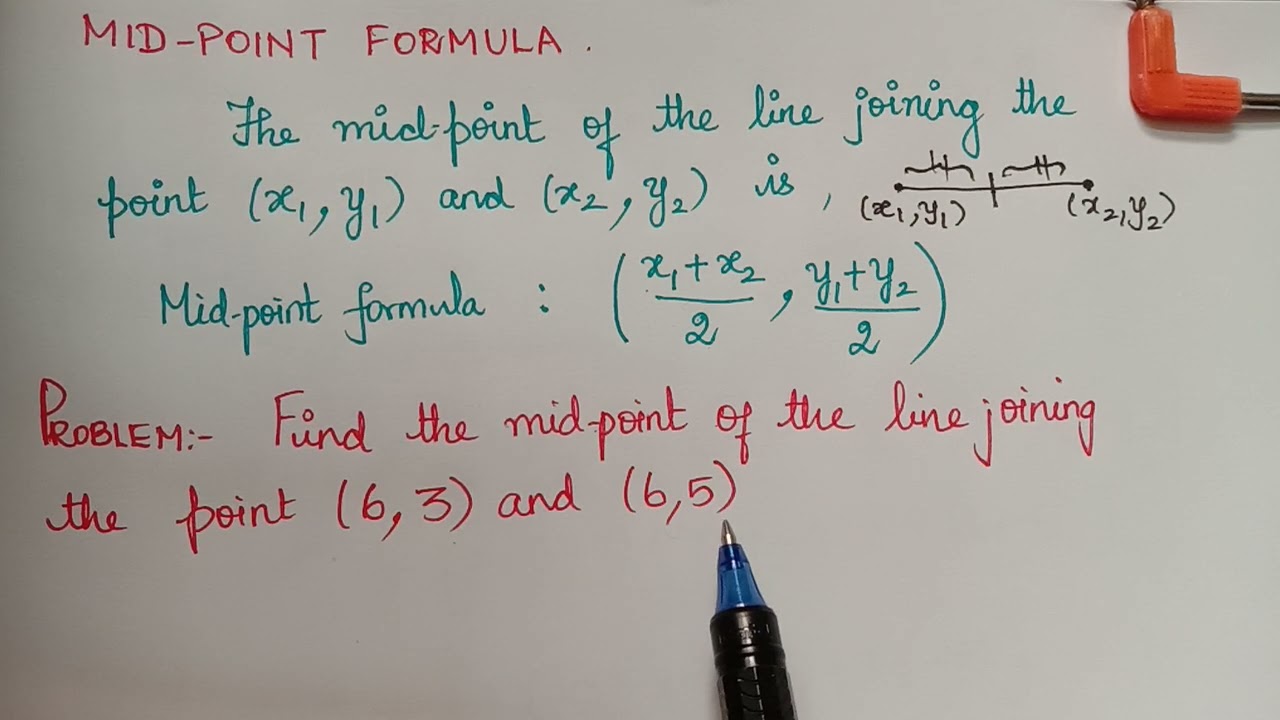 MID-POINT FORMULA.
The mid-point of the line joining the
point (x₁, y₁) and (x₂, y₂) is,
(x₁, y₁) (x₂, y₂)
Mid-point formula : ( (x₁ + x₂)/2 , (y₁ + y₂)/2 )
PROBLEM:- Find the mid-point of the line joining
the point (6, 3) and (6,5)